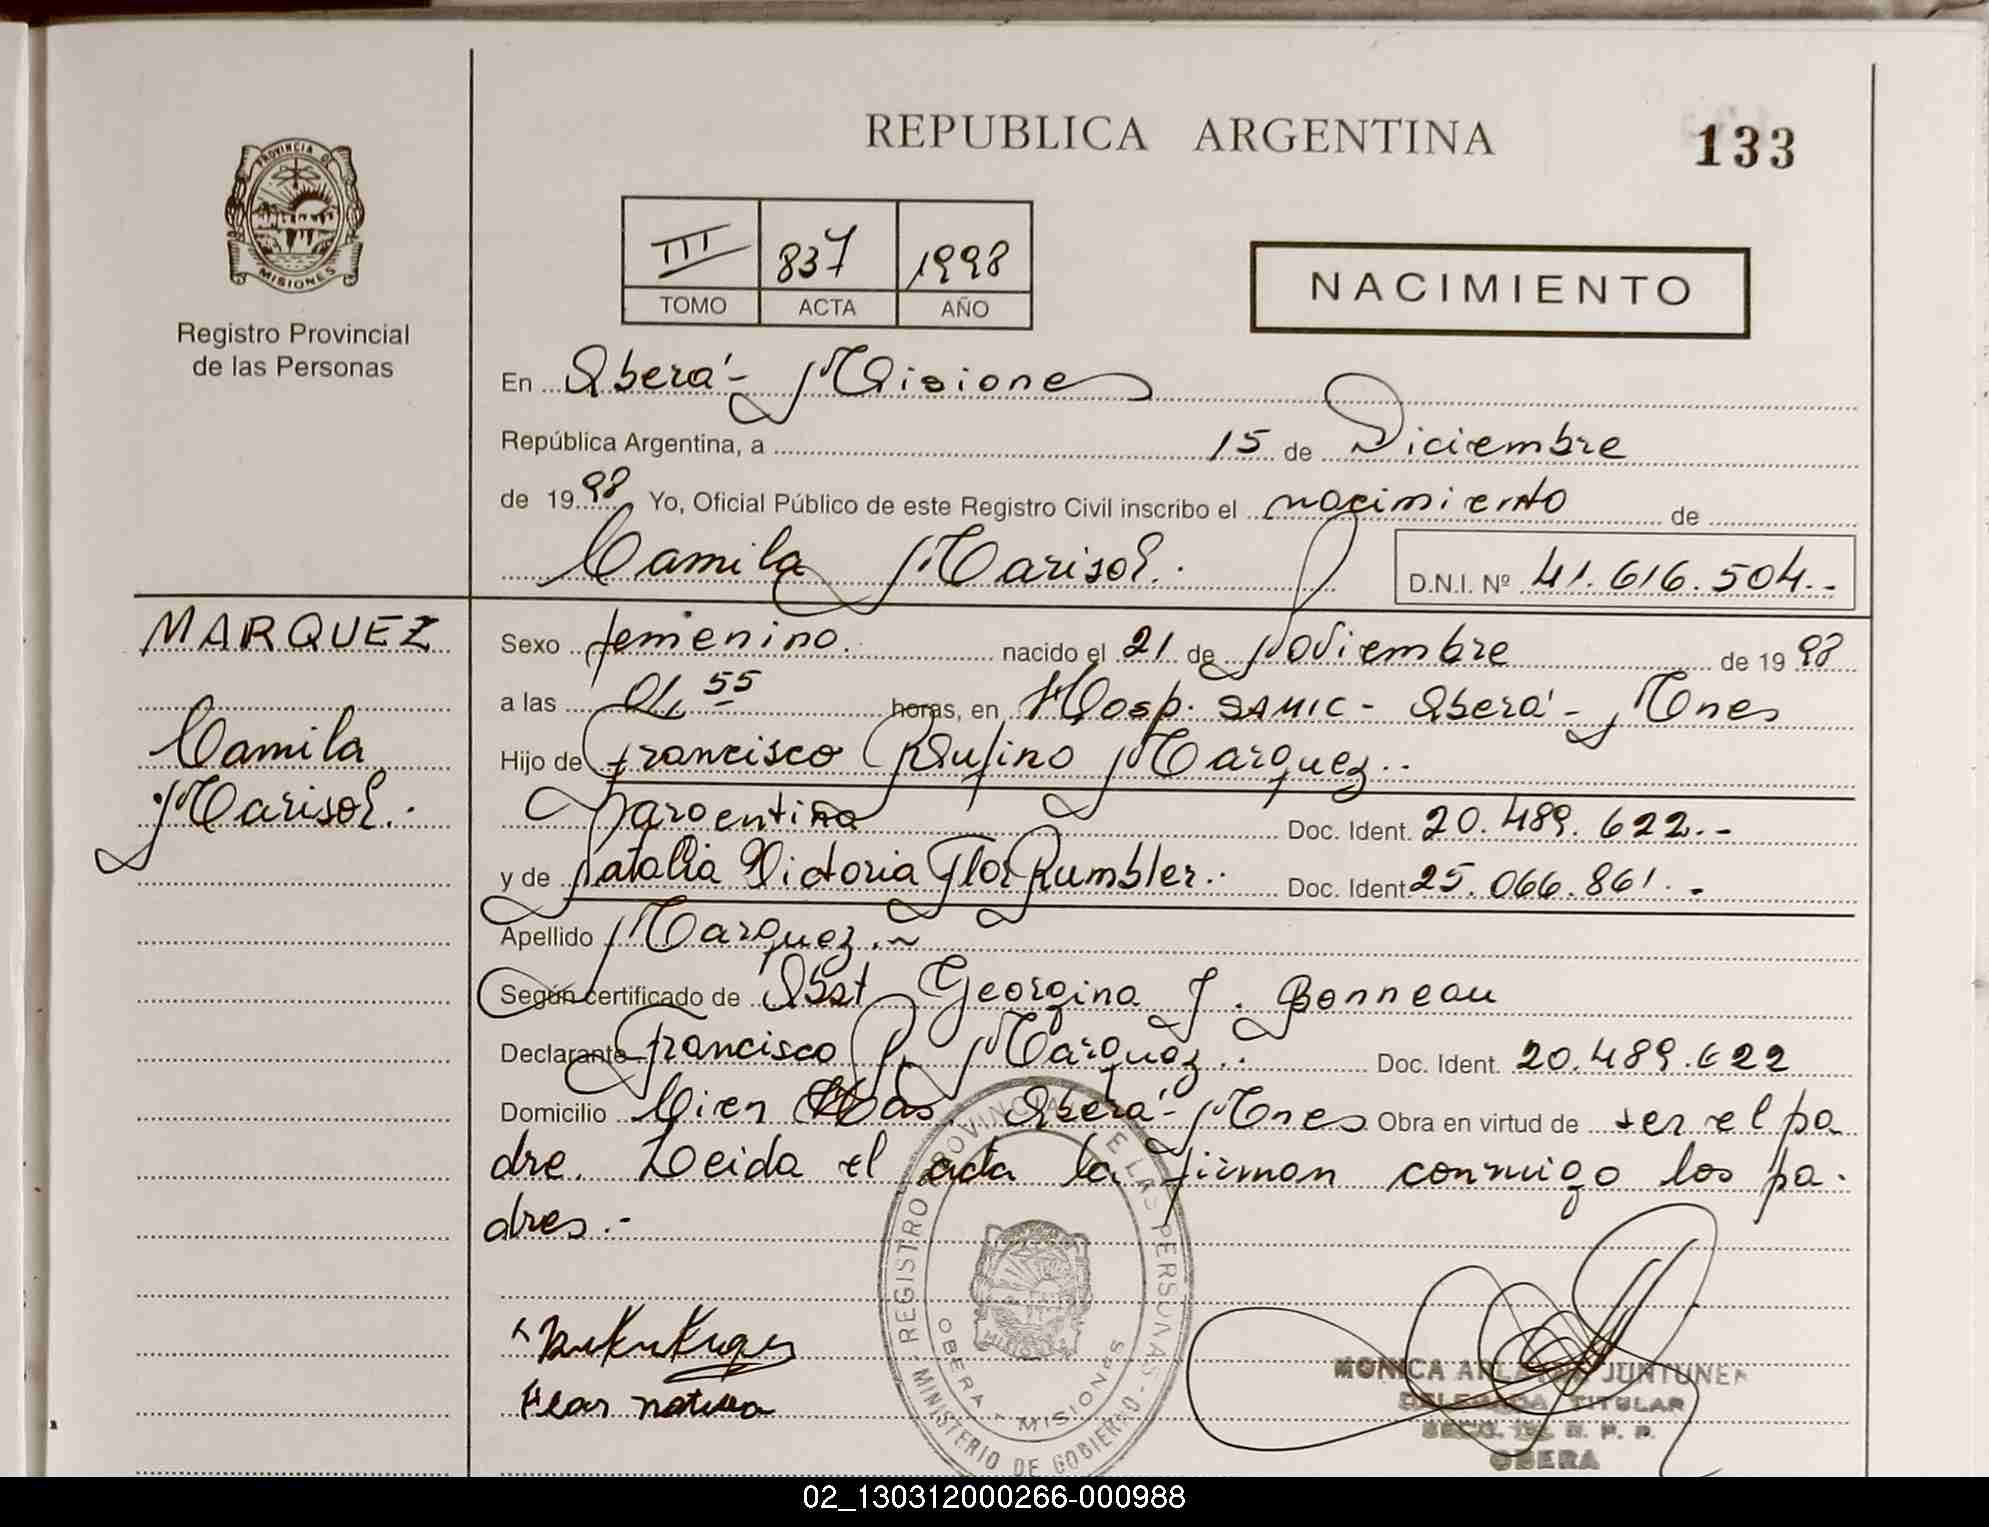 REPUBLICA ARGENTINA
133
PROVINCIA DE
MISIONES
Registro Provincial
de las Personas
III 837 1998
TOMO ACTA AÑO
NACIMIENTO
En Oberá - Misiones
República Argentina, a 15 de Diciembre
de 1998 Yo, Oficial Público de este Registro Civil inscribo el nacimiento de
Camila Marisol.
D.N.I. Nº 41.616.504.-
MARQUEZ
Camila
Marisol.
Sexo femenino. nacido el 21 de Noviembre de 1998
a las 01,55 horas, en Hosp. SAMIC - Oberá - Mnes
Hijo de Francisco Rufino Marquez.
argentina Doc. Ident. 20.489.622.-
y de Natalia Victoria Flor Rumbler. Doc. Ident 25.066.861.-
Apellido Marquez.
Según certificado de Obst Georgina J. Bonneau
Declarante Francisco R. Marquez. Doc. Ident. 20.489.622
Domicilio Cien Has. Oberá - Mnes Obra en virtud de ser el pa
dre. Leida el acta la firman conmigo los pa-
dres.-
REGISTRO PROVINCIAL DE LAS PERSONAS - MINISTERIO DE GOBIERNO -
OBERA - MISIONES
MONICA JUNTUNEN
DELEGADA TITULAR
SECC. R. P. P.
OBERA
02_130312000266-000988